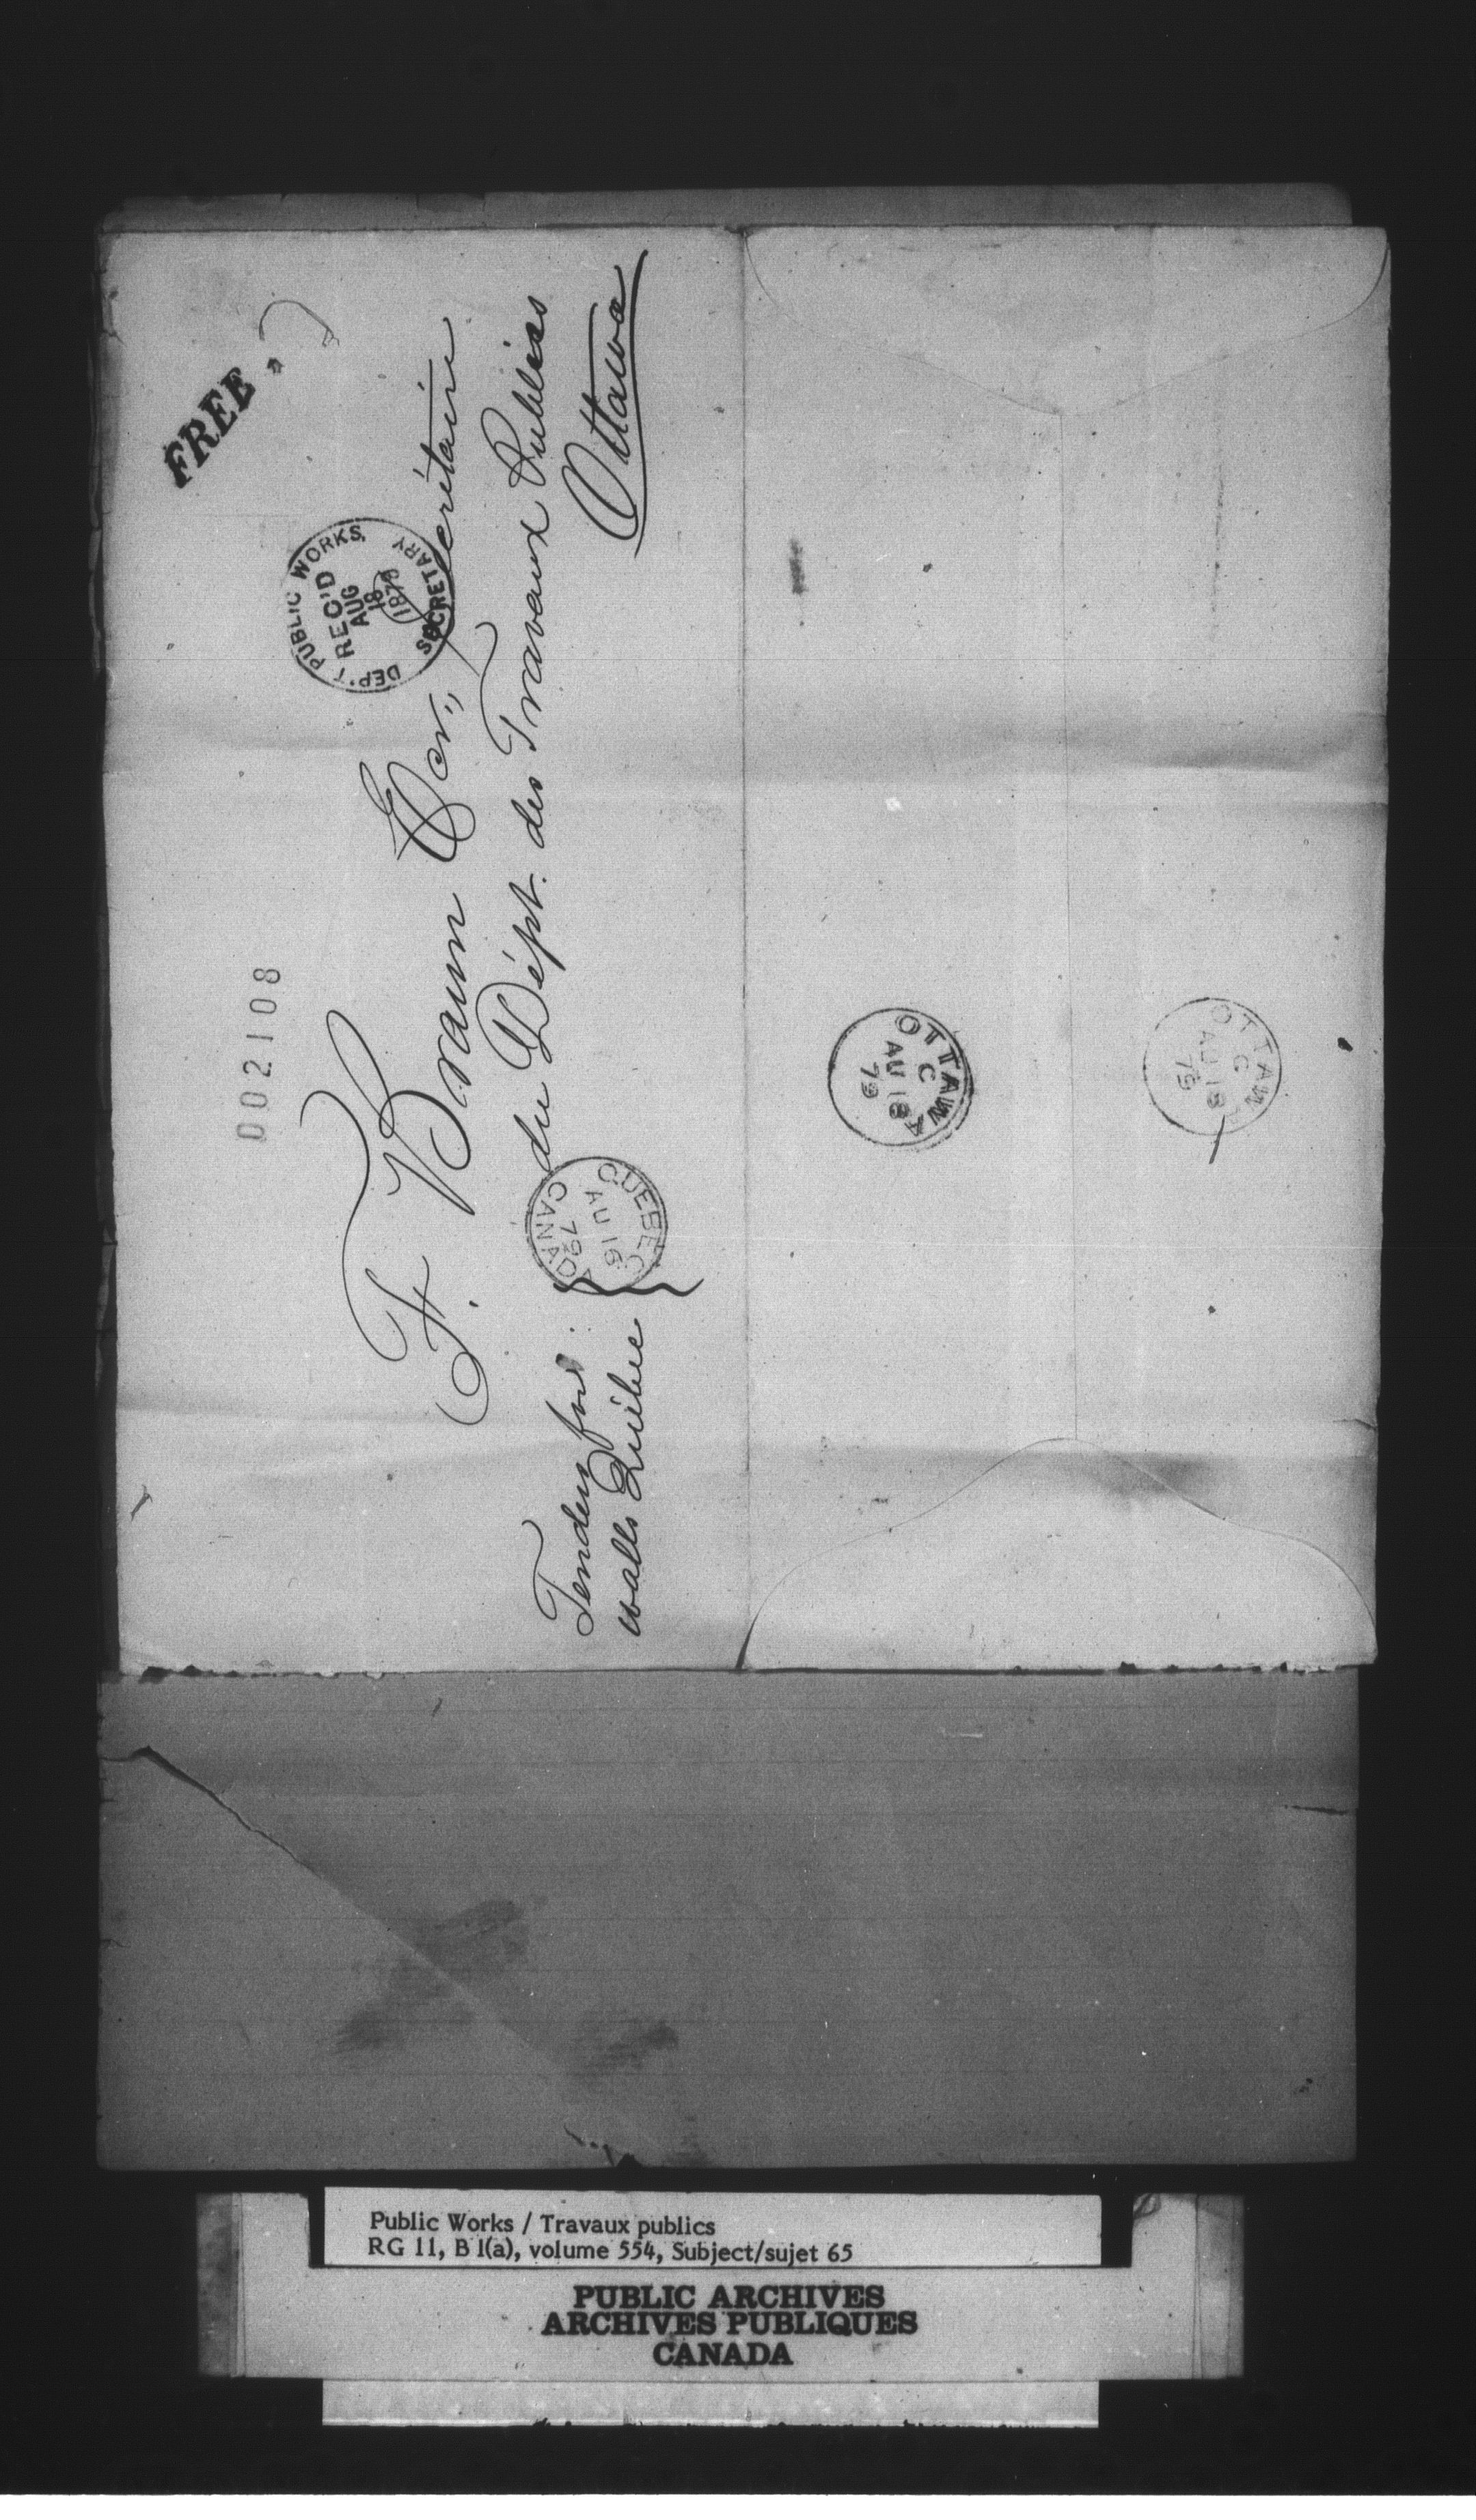 FREE.
DEP'T PUBLIC WORKS,
REC'D
AUG
18
1879
SECRETARY
002108
F. Braun Ecr., Secrétaire
du Dépt. des Travaux Publics
Ottawa
QUEBEC
AU 16
79
CANADA
Tenders for
walls Québec
OTTAWA
C
AU 18
79
OTTAWA
C
AU 18
79
Public Works / Travaux publics
RG 11, B 1(a), volume 554, Subject/sujet 65
PUBLIC ARCHIVES
ARCHIVES PUBLIQUES
CANADA